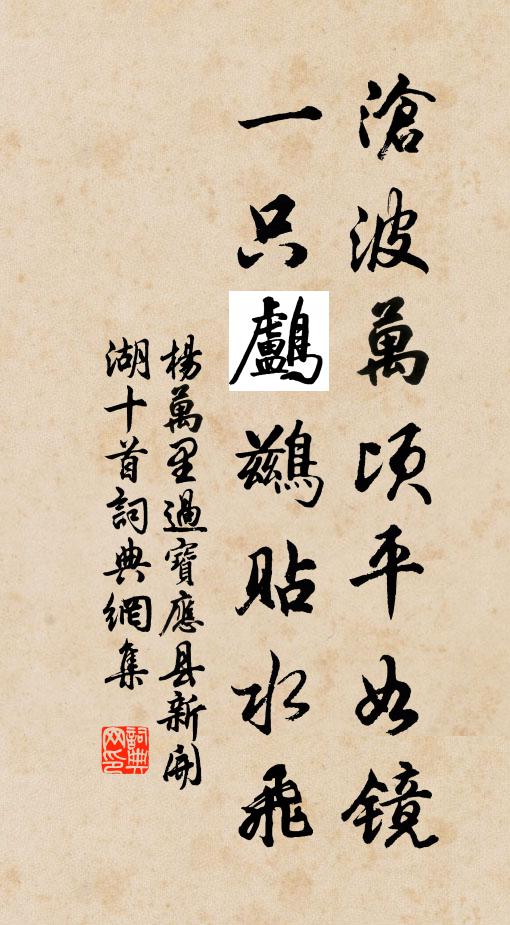 滄波萬頃平如鏡
一只鸕鷀貼水飛
楊萬里過寶應县新開
湖十首詞典網集
詞典网印